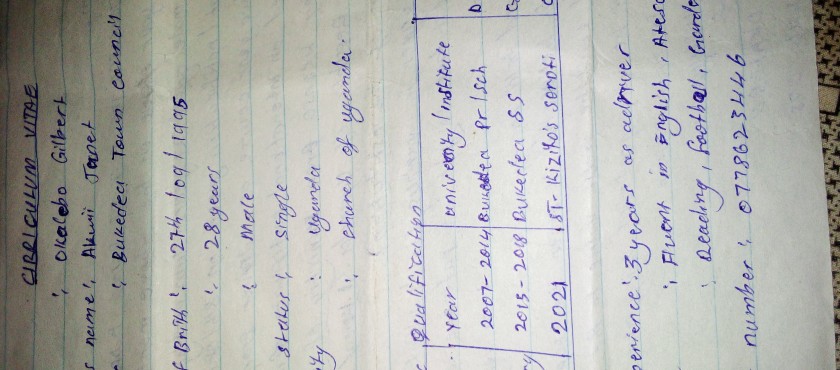 CIRRICULUM VITAE
: Okalebo Gilbert
s name : Akurii Janet
: Bukedea Town council
f Brith : 27th /09/1995
: 28 years
: Male
status : Single
ity : Uganda
: church of uganda.
Qualification
Year university/institute
2007-2014 Bukedea pr/sch D
2015-2018 Bukedea SS
2021 ST-Kizito's soroti
perience : 3 years as adriver
: Fluent in English, Ateso
: Reading, Football, Garde
number : 0778623446